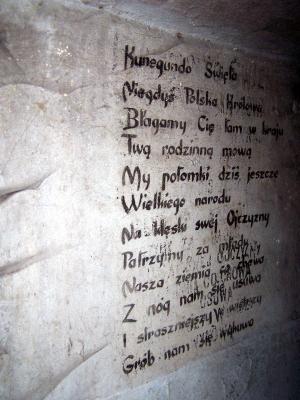 Kunegundo Święta
Niegdyś Polska Królowa
Błagamy Cię tam w kraju
Twą rodzinną mową
My potomki dziś jeszcze
Wielkiego narodu
Na klęski swej Ojczyzny
Patrzymy za młodu
Nasza ziemia się chowa
Z nóg nam się usuwa
I straszniejszy w
Grób nam się wykuwa